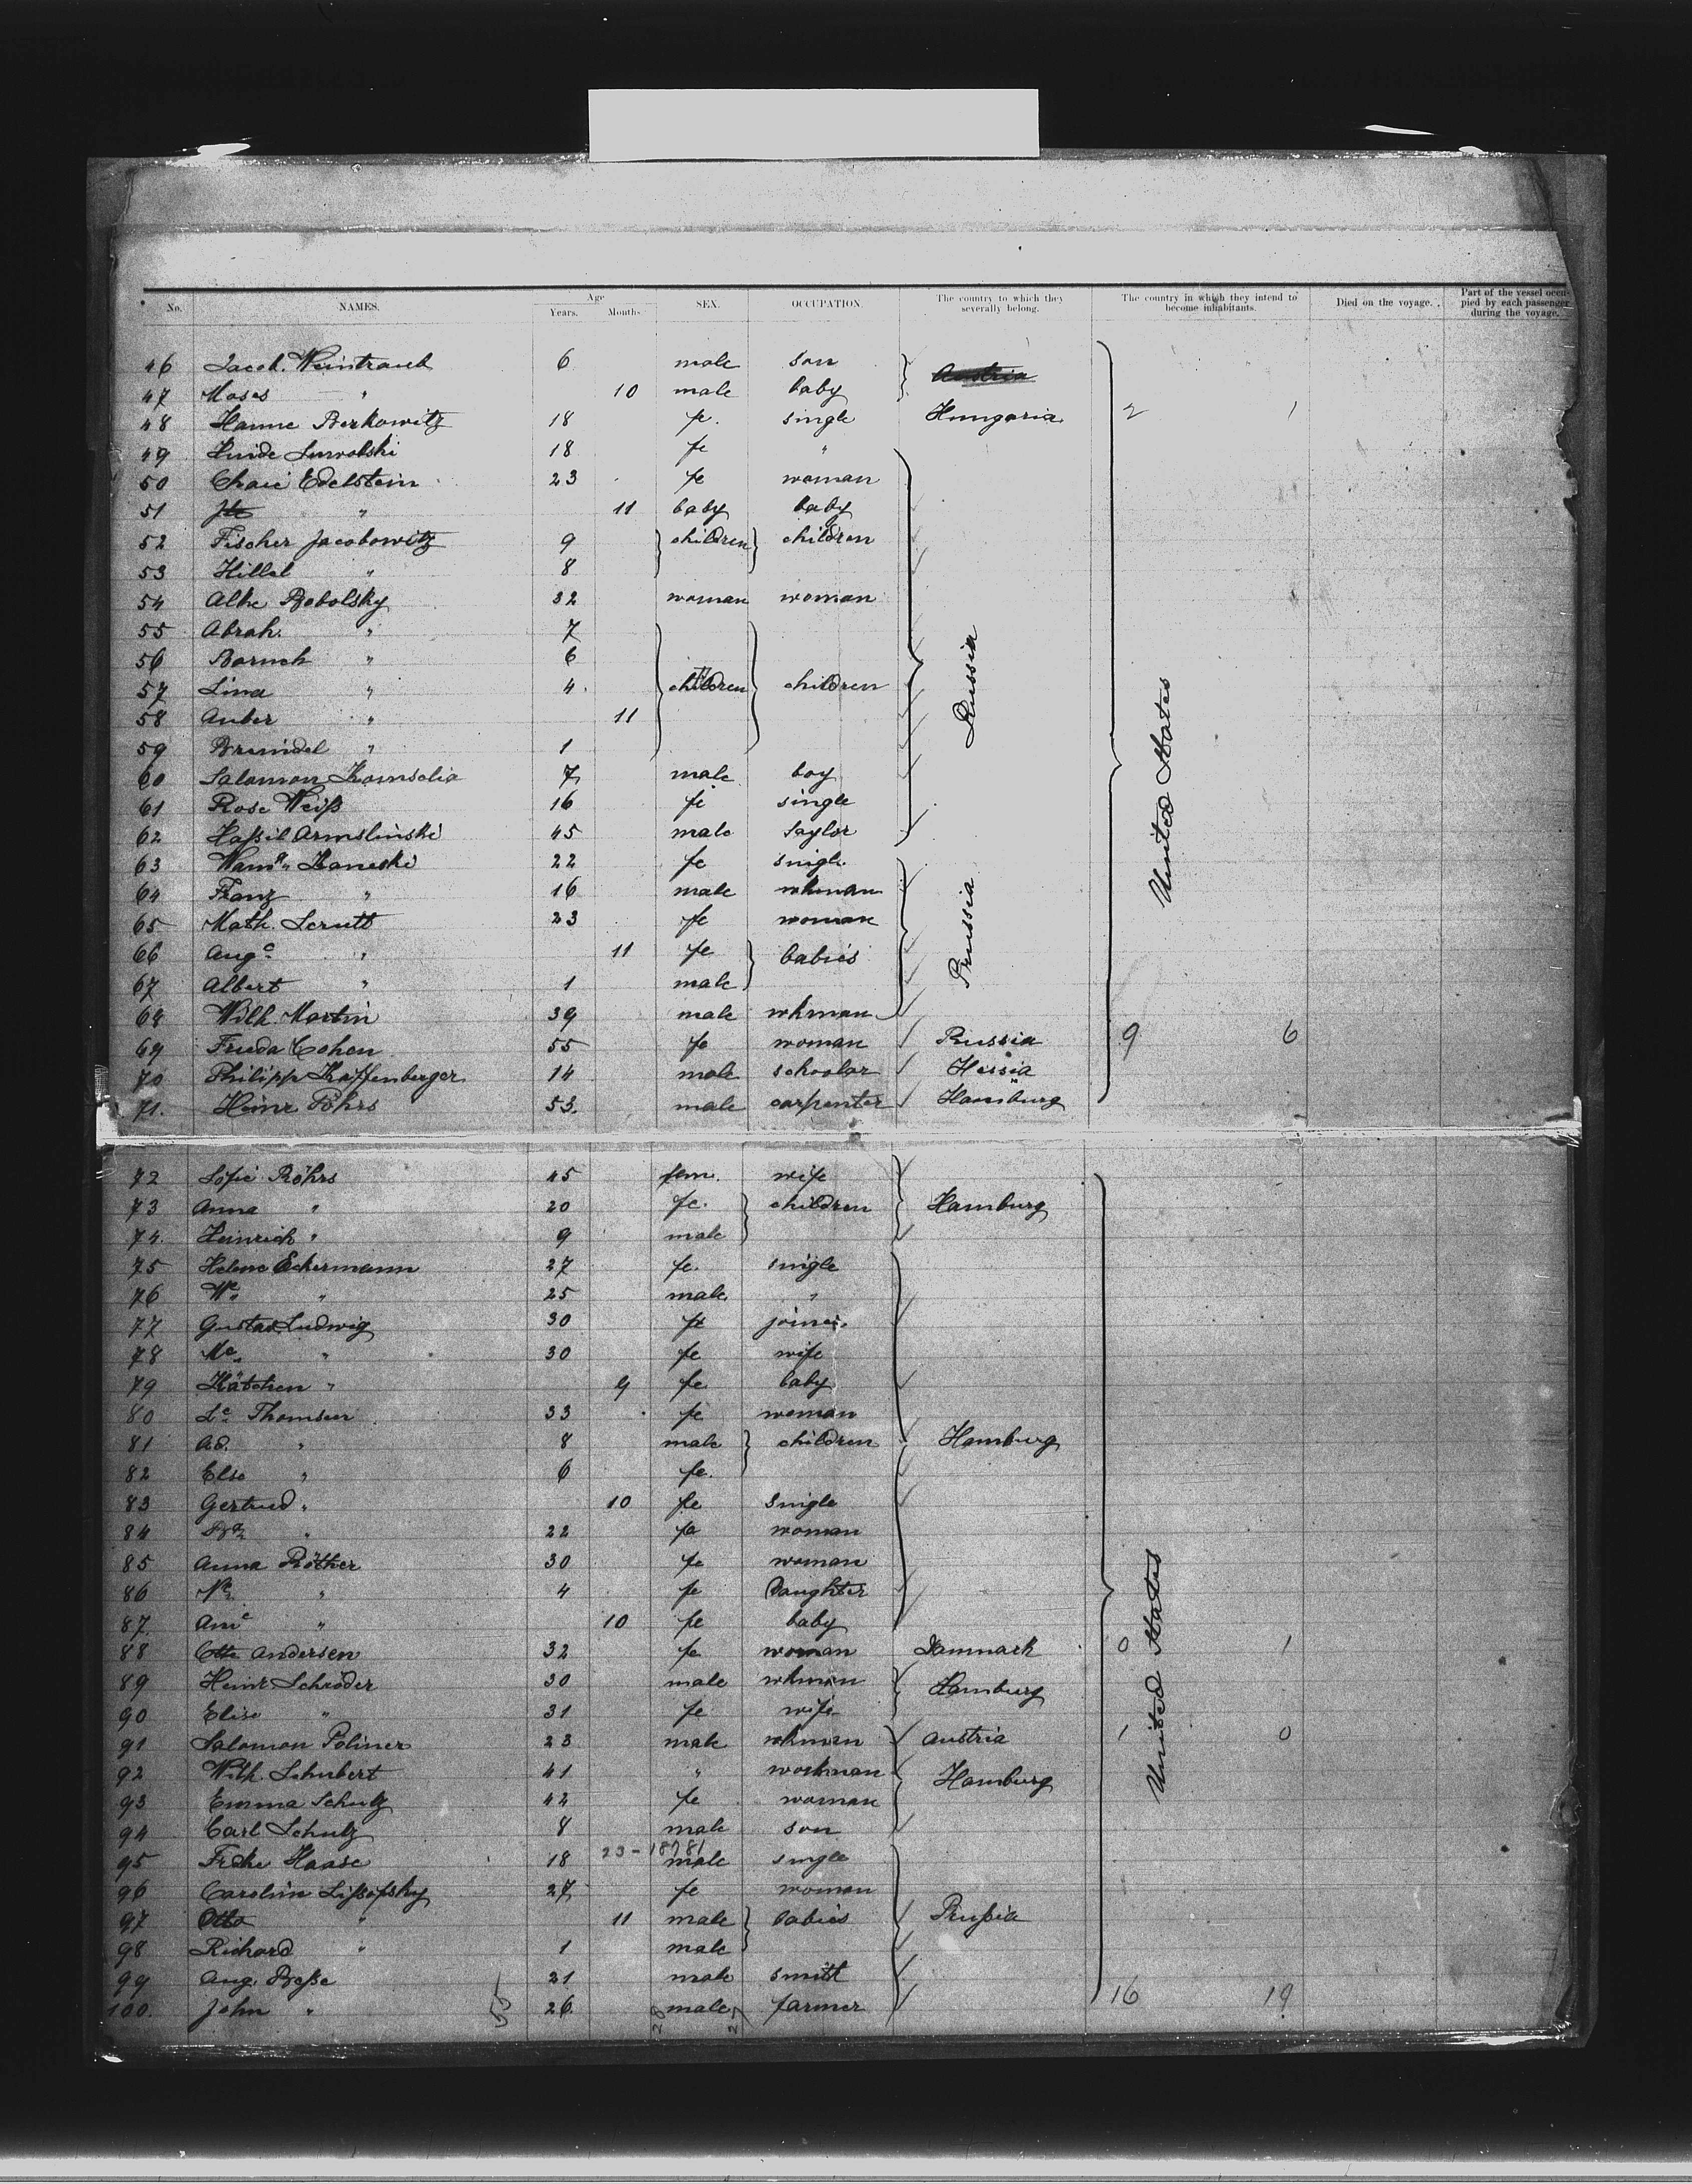 No. NAMES. Age Years. Months. SEX. OCCUPATION. The country to which they severally belong. The country in which they intend to become inhabitants. Died on the voyage. Part of the vessel occupied by each passenger during the voyage.
46 Jacob. Weintraub 6 male son Austria
47 Moses " 10 male baby
48 Hanne Berkowitz 18 fe. single Hungaria 2 1
49 18 fe "
50 Chaie Edelstein 23 fe woman
51 " 11 baby baby
52 Fischer Jacobowitz 9 children children
53 Hillel " 8
54 Alke Bobolsky 32 woman woman
55 Abrah. " 7
56 Baruch " 6
57 Lina " 4 children children Russia
58 " 11
59 Breindel " 1
60 Salomon 7 male boy
61 Rose Weiß 16 fe single
62 45 male taylor United States
63 22 fe single
64 Franz " 16 male wkman
65 Math. 23 fe woman Prussia
66 Auge " 11 fe babies
67 Albert " 1 male
68 Wilh. Martin 39 male wkman
69 Frieda Cohen 55 fe woman Russia 9 6
70 Philipp Kaffenberger 14 male schoolar Hessia
71. Heinr 53. male carpenter Hamburg
72 Sofie Röhrs 45 fem. wife
73 Anna " 20 fe. children Hamburg
74. Heinrich " 9 male
75 Helene Eckermann 27 fe. single
76 We " 25 male "
77 Gustav Ludwig 30 fe joiner
78 Me " 30 fe wife
79 Kätchen " 9 fe baby
80 Le Thomsen 33 fe woman
81 Ad. " 8 male children Hamburg
82 Else " 6 fe.
83 Gertrud " 10 fe single
84 " 22 fe woman
85 Anna Röther 30 fe woman
86 " 4 fe Daughter United States
87. " 10 fe baby
88 Andersen 32 fe woman Danmark 0 1
89 Heinr Schröder 30 male wkman Hamburg
90 Elise " 31 fe wife
91 Salomon Poliner 23 male wkman Austria 1 0
92 Wilh. Schubert 41 " workman Hamburg
93 Emma Schulz 42 fe woman
94 Carl Schulz 8 male son
23 - 18781
95 Haase 18 male single
96 Carolin Lißofsky 27 fe woman
97 Otto " 11 male babies Prußia
98 Richard " 1 male
99 Aug. Beße 21 male smith
100. John " 55 26 28 male 27 farmer 16 19